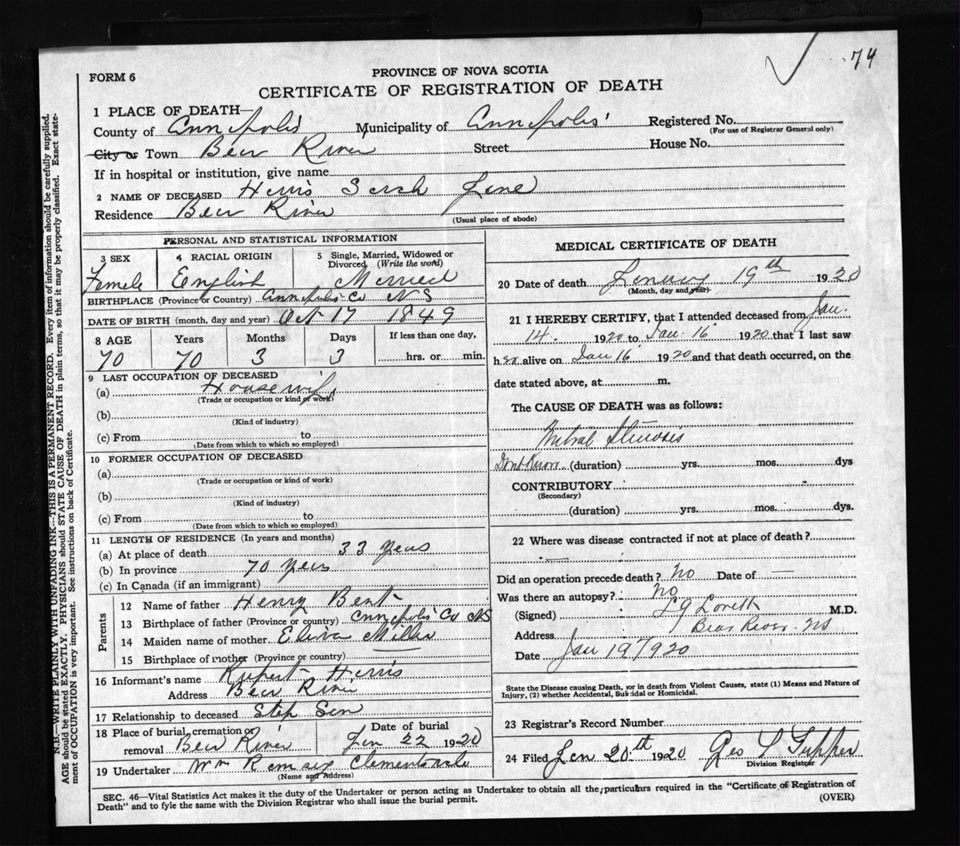 74
FORM 6
PROVINCE OF NOVA SCOTIA
CERTIFICATE OF REGISTRATION OF DEATH
1 PLACE OF DEATH—
County of Annapolis Municipality of Annapolis Registered No.
(For use of Registrar General only)
City or Town Bear River Street House No.
If in hospital or institution, give name
2 NAME OF DECEASED Harris Sarah Jane
Residence Bear River
(Usual place of abode)
PERSONAL AND STATISTICAL INFORMATION
3 SEX 4 RACIAL ORIGIN 5 Single, Married, Widowed or Divorced, (Write the word)
Female English Married
BIRTHPLACE (Province or Country) Annapolis Co NS
DATE OF BIRTH (month, day and year) Oct 17 1849
8 AGE Years Months Days If less than one day,
70 70 3 3 hrs. or min.
9 LAST OCCUPATION OF DECEASED
(a) Housewife
(Trade or occupation or kind of work)
(b)
(Kind of industry)
(c) From to
(Date from which to which so employed)
10 FORMER OCCUPATION OF DECEASED
(a)
(Trade or occupation or kind of work)
(b)
(Kind of industry)
(c) From to
(Date from which to which so employed)
11 LENGTH OF RESIDENCE (In years and months)
(a) At place of death 33 years
(b) In province 70 years
(c) In Canada (if an immigrant)
Parents
12 Name of father Henry Bent
13 Birthplace of father (Province or country) Annapolis Co NS
14 Maiden name of mother Eliza Miller
15 Birthplace of mother (Province or country)
16 Informant's name Rupert Harris
Address Bear River
17 Relationship to deceased Step Son
18 Place of burial, cremation or removal Bear River Date of burial Jan 22 1920
19 Undertaker Wm Ramsey Clementsvale
(Name and Address)
MEDICAL CERTIFICATE OF DEATH
20 Date of death January 19th 1920
(Month, day and year)
21 I HEREBY CERTIFY, that I attended deceased from Jan.
14. 1920 to Jan. 16 1920 that I last saw
her alive on Jan 16 1920 and that death occurred, on the
date stated above, at m.
The CAUSE OF DEATH was as follows:
Mitral Stenosis
Dont Know (duration) yrs. mos. dys
CONTRIBUTORY
(Secondary)
(duration) yrs. mos. dys.
22 Where was disease contracted if not at place of death?
Did an operation precede death? No Date of —
Was there an autopsy? No
(Signed) Lovett M.D.
Address Bear River. NS
Date Jan 19/1920
State the Disease causing Death, or in death from Violent Causes, state (1) Means and Nature of
Injury, (2) whether Accidental, Suicidal or Homicidal.
23 Registrar's Record Number
24 Filed Jan 20th 1920 Geo L Tupper
Division Registrar
SEC. 46—Vital Statistics Act makes it the duty of the Undertaker or person acting as Undertaker to obtain all the particulars required in the "Certificate of Registration of
Death" and to fyle the same with the Division Registrar who shall issue the burial permit.
(OVER)
N.B.—WRITE PLAINLY WITH UNFADING INK—THIS IS A PERMANENT RECORD. Every item of information should be carefully supplied.
AGE should be stated EXACTLY. PHYSICIANS should STATE CAUSE OF DEATH in plain terms, so that it may be properly classified. Exact state-
ment of OCCUPATION is very important. See instructions on back of Certificate.